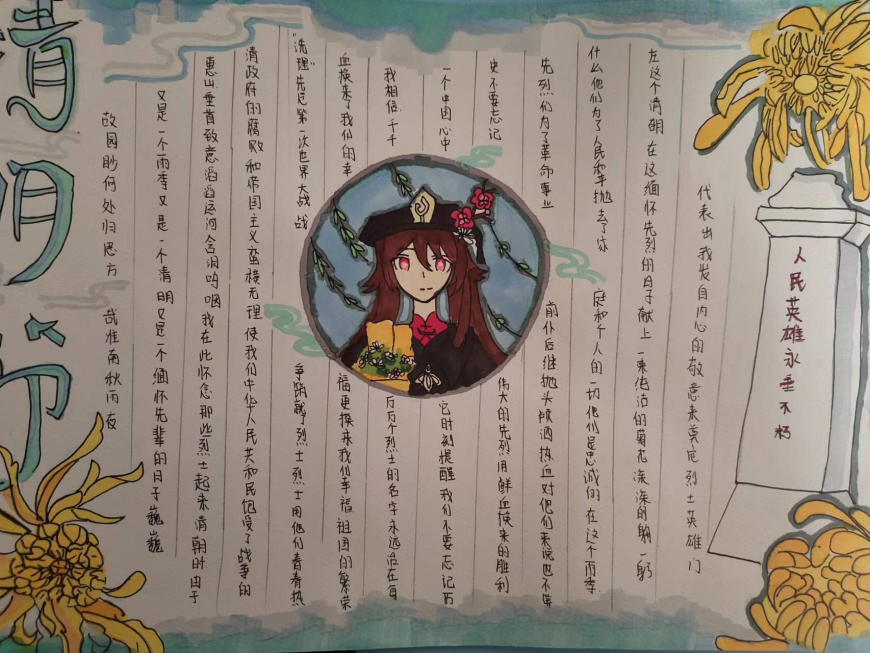 清明节
故园眇何处归思方 哉淮南秋雨夜
又是一个雨季又是一个清明又是一个缅怀先辈的日子巍巍
惠山垂首致意滔滔运河含泪呜咽我在此怀念那些烈士起来清朝时由于
清政府的腐败和帝国主义蛮横无理使我们中华人民共和民饱受了战争的
"洗理"先 第一次世界大战战 争 献了烈士烈士用他们青春热
血换来了我们的幸 福更换来我们幸福祖国的繁荣
我相信千千 万万个烈士的名字永远活在每
一个中国心中 它时刻提醒我们不要忘记历
史不要忘记 伟大的先烈用鲜血换来的胜利
先烈们为了革命事业 前仆后继抛头颅洒热血对他们来说也不算
什么他们为了人民和平抛去了家 庭和个人的一切他们是忠诚的在这个雨季
在这个清明在这缅怀先烈的日子献上一束 洁的菊花深深的鞠一躬
代表出我发自内心的敬意来奠 烈士英雄们
人民英雄永垂不朽